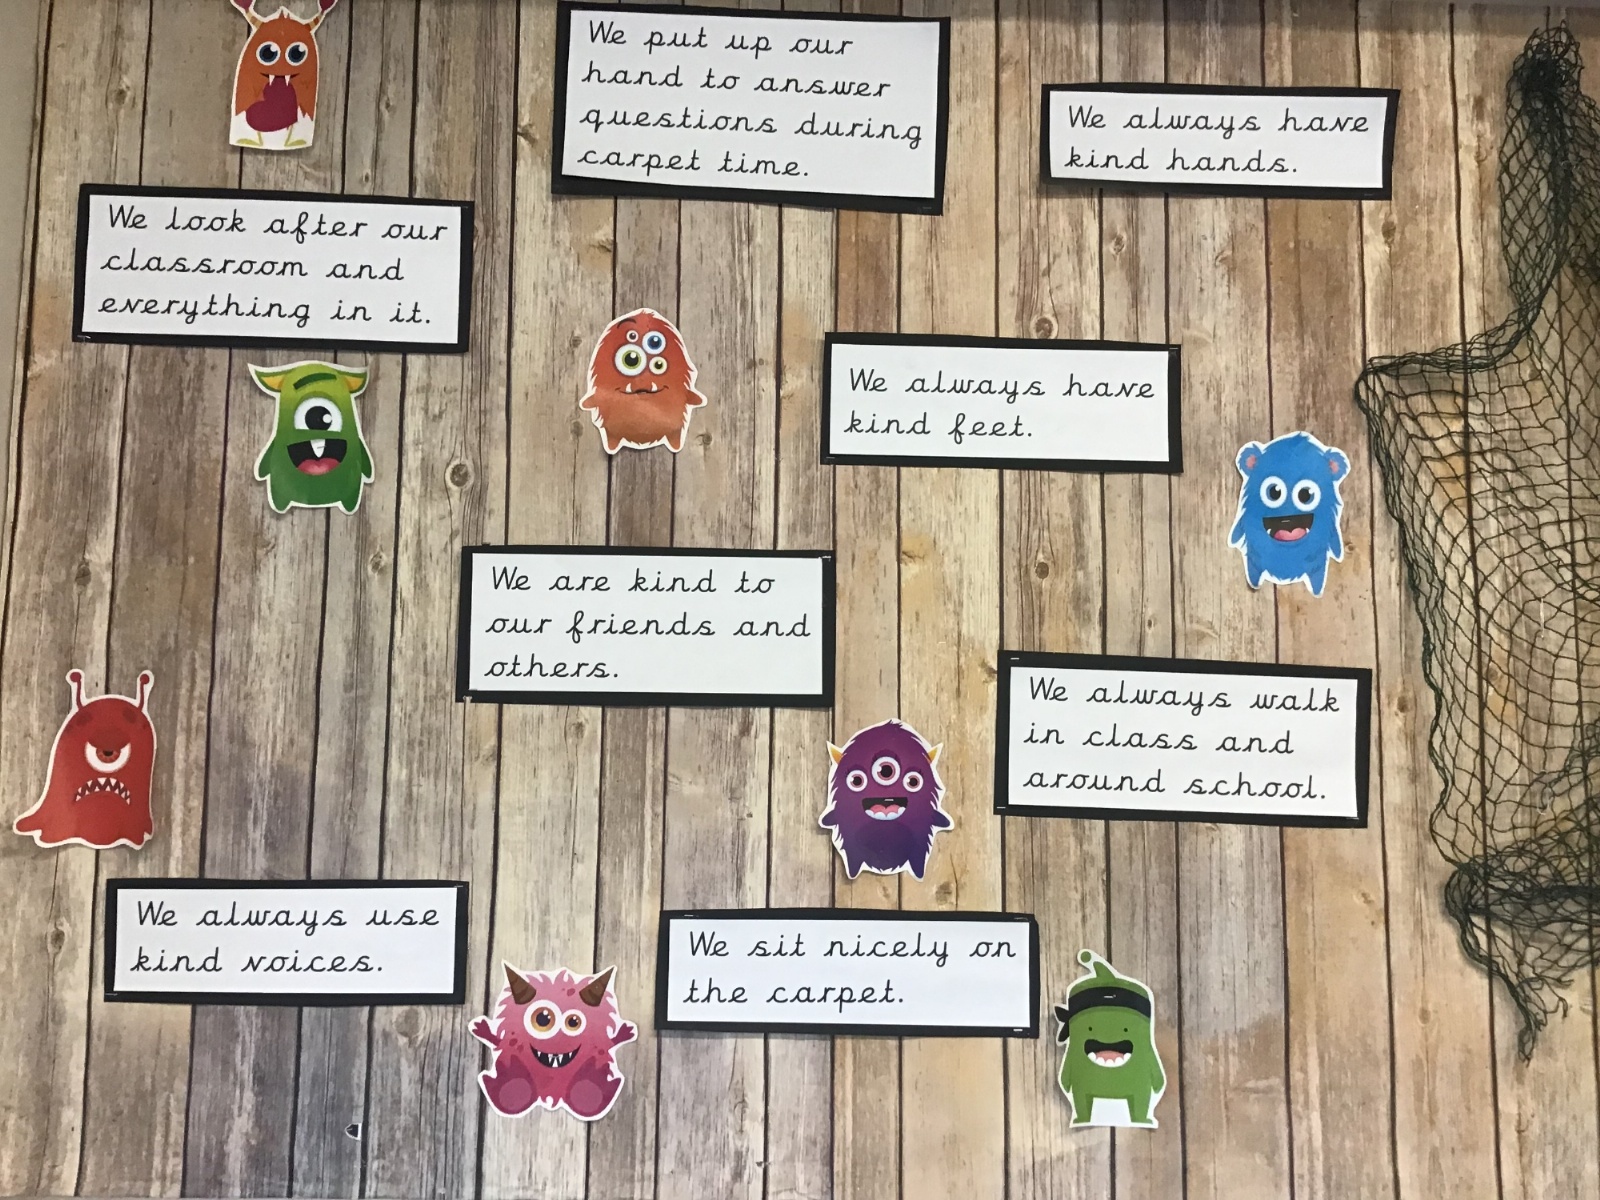 We put up our
hand to answer
questions during
carpet time.
We always have
kind hands.
We look after our
classroom and
everything in it.
We always have
kind feet.
We are kind to
our friends and
others.
We always walk
in class and
around school.
We always use
kind voices.
We sit nicely on
the carpet.